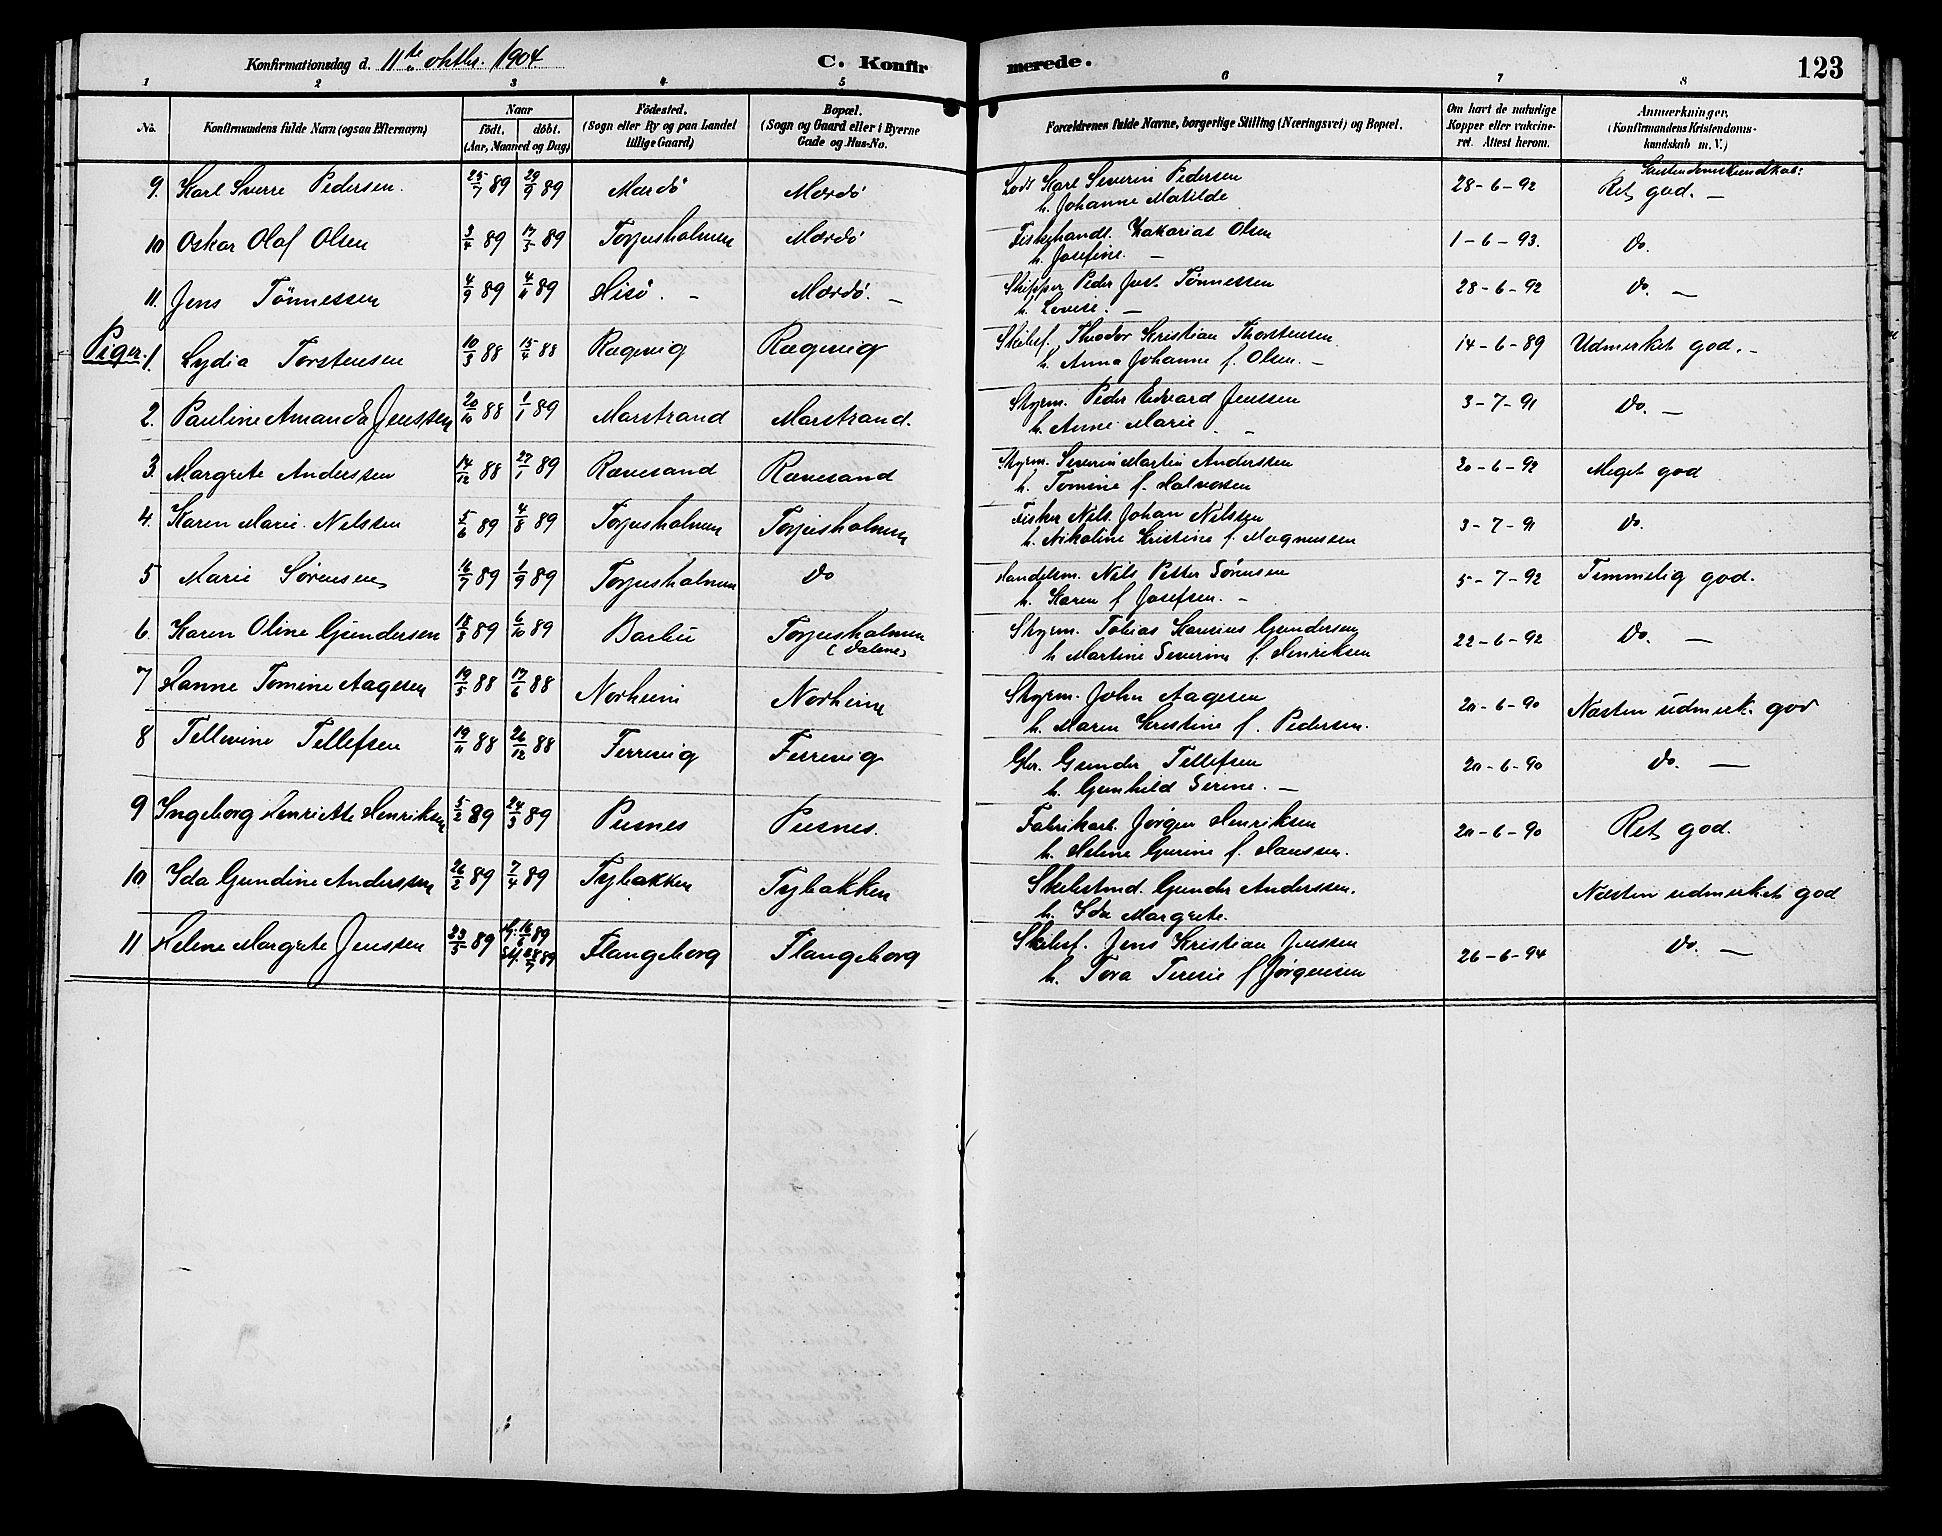 Konfirmationsdag d. 11te oktbr. 1904 C. Konfir merede. 123
1 2 3 4 5 6 7 8
No. Konfirmandens fulde Navn (ogsaa Efternavn) Naar födt. döbt. (Aar, Maaned og Dag) Födested. (Sogn eller By og paa Landet tillige Gaard) Bopæl. (Sogn og Gaard eller i Byerne Gade og Hus-No. Forældrenes fulde Navne, borgerlige Stilling (Næringsvei) og Bopæl. Om havt de naturlige Kopper eller vakcineret. Attest herom. Anmærkninger. (Konfirmandens Kristendomskundskab m. V.)
Kristendomskundskab:
9. Karl Sverre Pedersen. 25/7 89 29/9 89 Mærdö Mærdö Lods Karl Severin Pedersen 28-6-92 Ret god. —
h. Johanne Matilde
10 Oskar Olaf Olsen 3/4 89 17/5 89 Torjusholmen Mærdö Fiskehandl. Zakarias Olsen 1-6-93. Do.
h. Josefine. —
11. Jens Tönnessen 4/9 89 4/11 89 Hisö. - Mærdö. — Skipper Peder Just Tönnessen 28-6-92 Do. —
h. Lovise. —
Piger.
1. Lydia Torstensen 10/3 88 15/4 88 Rægevig Rægevig Skibsf. Theodor Kristian Thorstensen 14-6-89 Udmerket god. -
h. Anna Johanne f. Olsen. —
2. Pauline Amanda Jenssen 20/10 88 1/1 89 Marstrand Marstrand. Styrm. Peder Edvard Jenssen 3-7-91 Do. —
h. Anne Marie —
3. Margrete Anderssen 14/12 88 27/1 89 Rævesand Rævesand Styrm. Severin Martin Anderssen 20-6-92 Meget god
h. Tomine f. Halvorsen
4. Karen Marie Nilssen 5/6 89 4/8 89 Torjusholmen Torjusholmen Fisker Nils Johan Nilssen 3-7-91 Do.
h. Nikoline Kristine f. Magnussen
5 Marie Sørensen 16/7 89 1/9 89 Torjusholmen Do Handelsm. Nils Petter Sørensen 5-7-92 Temmelig god.
h. Karen f Josefsen. -
6. Karen Oline Gundersen 18/8 89 6/10 89 Barbu Torjusholmen Styrm. Tobias Gundersen 22-6-92 Do. —
h Martine Severine f. Henriksen
7 Hanne Tomine Aagesen 19/5 88 17/6 88 Norheim Norheim Styrm. John Aagesen 20-6-90 Næsten udmerk. god
h. Maren Kristine f. Pedersen.
8 Tellevine Tellefsen 19/11 88 26/12 88 Færevig Færevig Gbr. Gunder Tellefsen 20-6-90 Do. —
h. Gunhild Serine. —
9 Ingeborg Henriette Henriksen 5/2 89 24/3 89 Pusnes Pusnes. Fabrikarb. Jørgen Henriksen 20-6-90 Ret god.
h. Helene Gurine f. Hanssen.
10 Ida Gundine Anderssen 26/2 89 7/4 89 Tybakken Tybakken Skibstmd. Gunder Anderssen. Næsten udmerket god
h. Ida Margrete.
11 Helene Margrete Jenssen 23/5 89 Hj. 16/6 89 Flangeborg Flangeborg Skibsf. Jens Kristian Jenssen 26-6-94 Do. —
h. Tora Teresie f Jørgensen